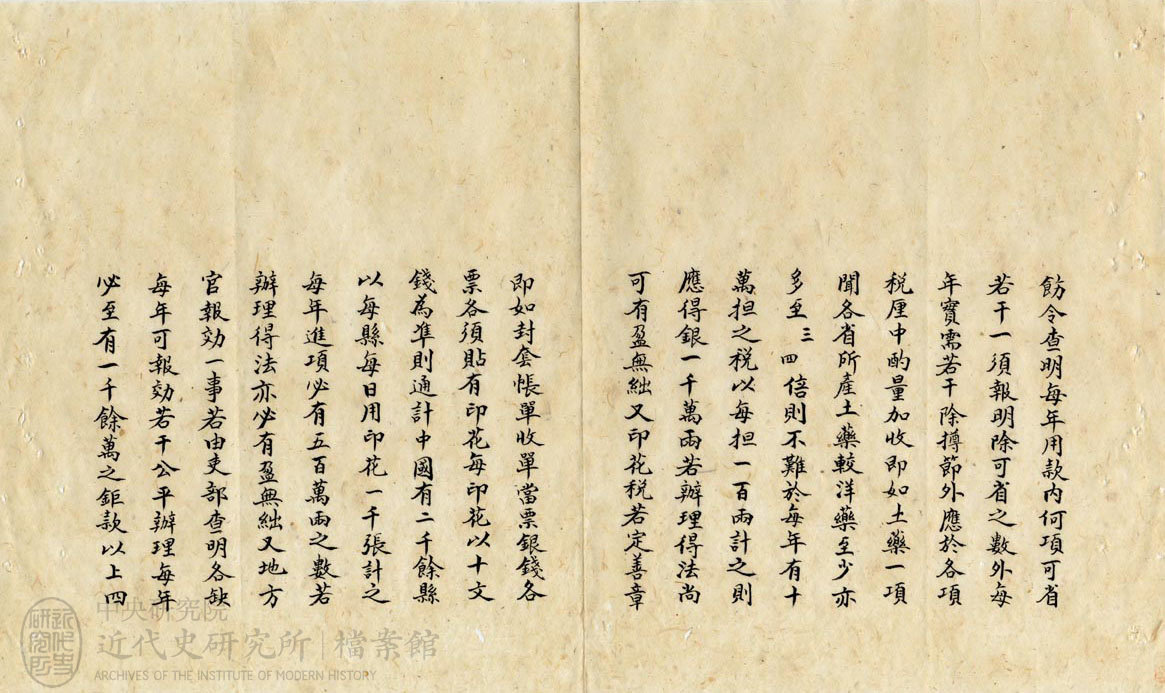 飭令查明每年用款内何項可省
若干一須報明除可省之數外每
年實需若干除撙節外應於各項
税厘中酌量加收即如土藥一項
聞各省所產土藥較洋藥至少亦
多至三四倍則不難於每年有十
萬担之税以每担一百兩計之則
應得銀一千萬兩若辦理得法尚
可有盈無絀又印花税若定善章
即如封套帳單收單當票銀錢各
票各須貼有印花每印花以十文
錢為準則通計中國有二千餘縣
以每縣每日用印花一千張計之
每年進項必有五百萬兩之數若
辦理得法亦必有盈無絀又地方
官報効一事若由吏部查明各缺
每年可報効若干公平辦理每年
必至有一千餘萬之鉅款以上四
中央研究院
近代史研究所|檔案館
ARCHIVES OF THE INSTITUTE OF MODERN HISTORY